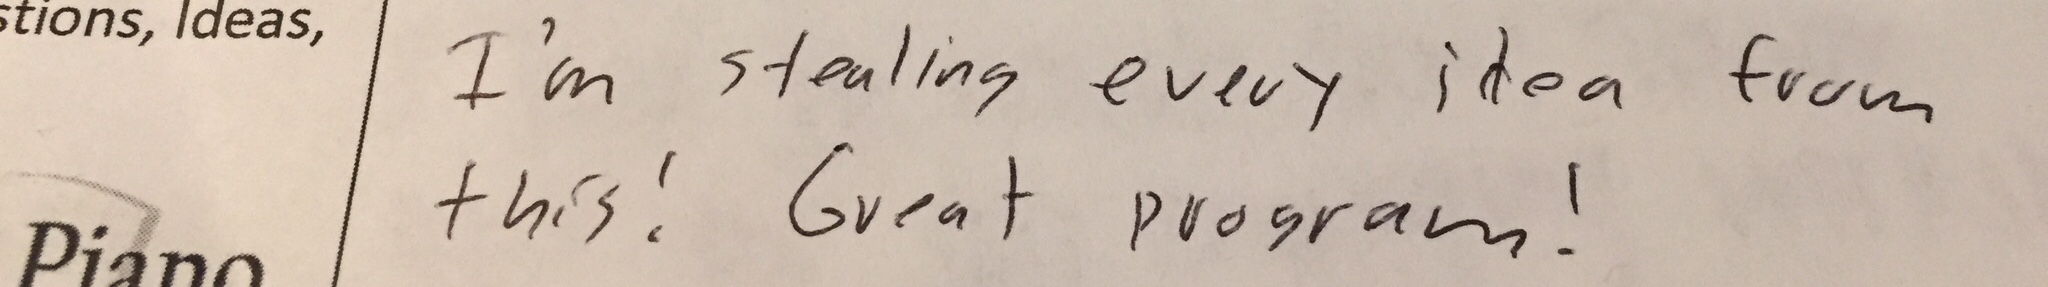 stions, Ideas,
I'm stealing every idea from
this! Great program!
Piano